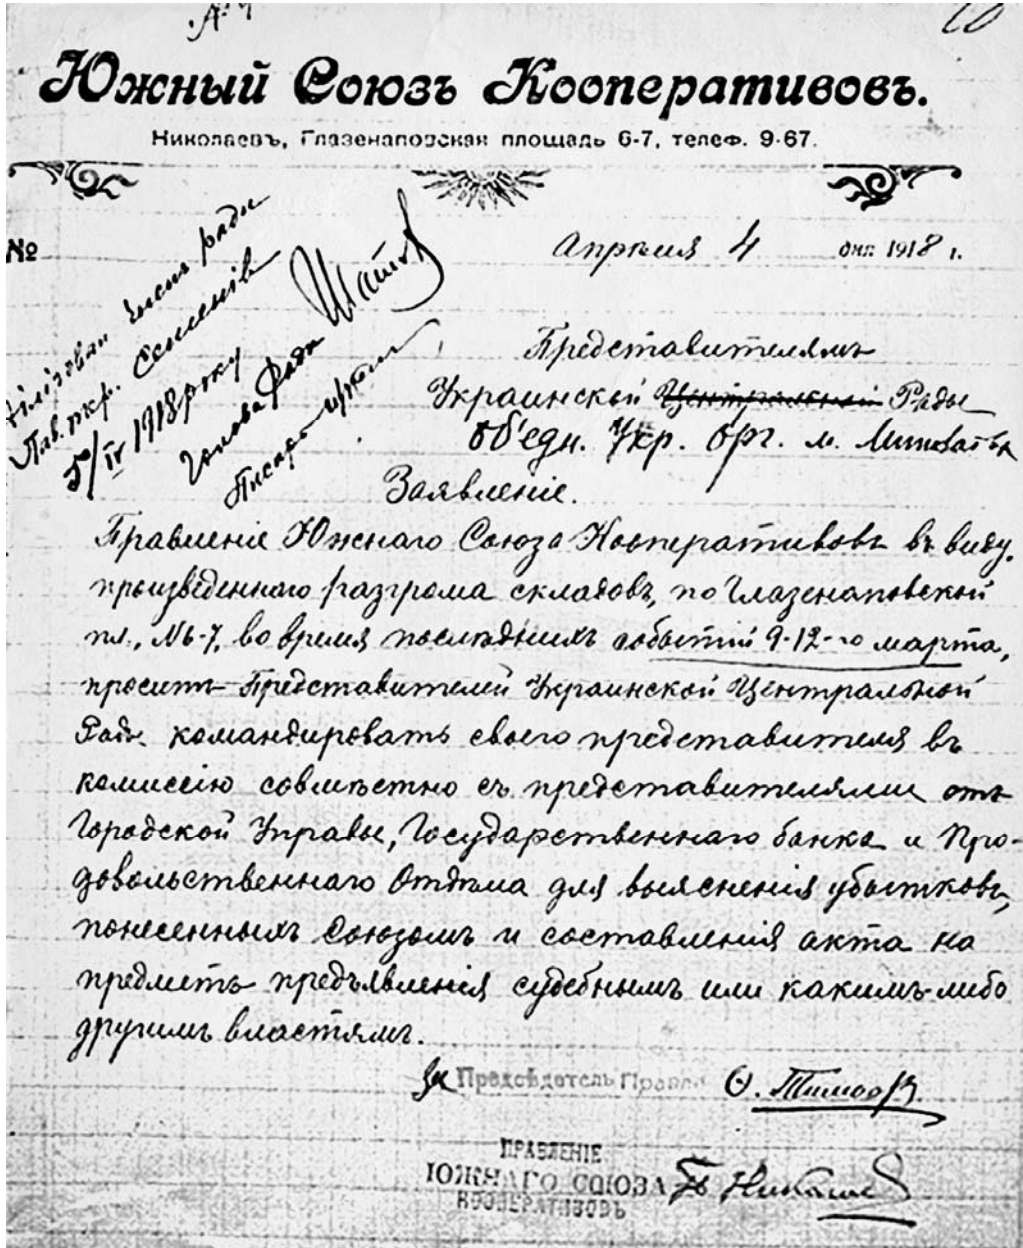 Южный Союзъ Кооперативовъ.
Николаевъ, Глазенаповская площадь 6-7, телеф. 9-67.
№
Апреля 4 дня 1918 г.
член ради
5/IV 1918 року
Голова Ради
Писарь
Представителямъ
Украинской Центральной Рады
об'едн. Укр. Орг. м.
Заявленіе.
Правленіе Южнаго Союза Кооперативовъ въ виду
произведеннаго разгрома складовъ, по Глазенаповской
пл., № 6-7, во время послѣднихъ событій 9-12-го марта,
проситъ Представителей Украинской Центральной
Рады командировать своего представителя въ
комиссію совмѣстно съ представителями отъ
Городской Управы, Государственнаго банка и Про-
довольственнаго Отдѣла для выясненія убытковъ,
понесенныхъ Союзомъ и составленія акта на
предметъ предъявленія судебнымъ или какимъ-либо
другимъ властямъ.
За Предсѣдатель Правле
ПРАВЛЕНІЕ
ЮЖНАГО СОЮЗА
КООПЕРАТИВОВЪ